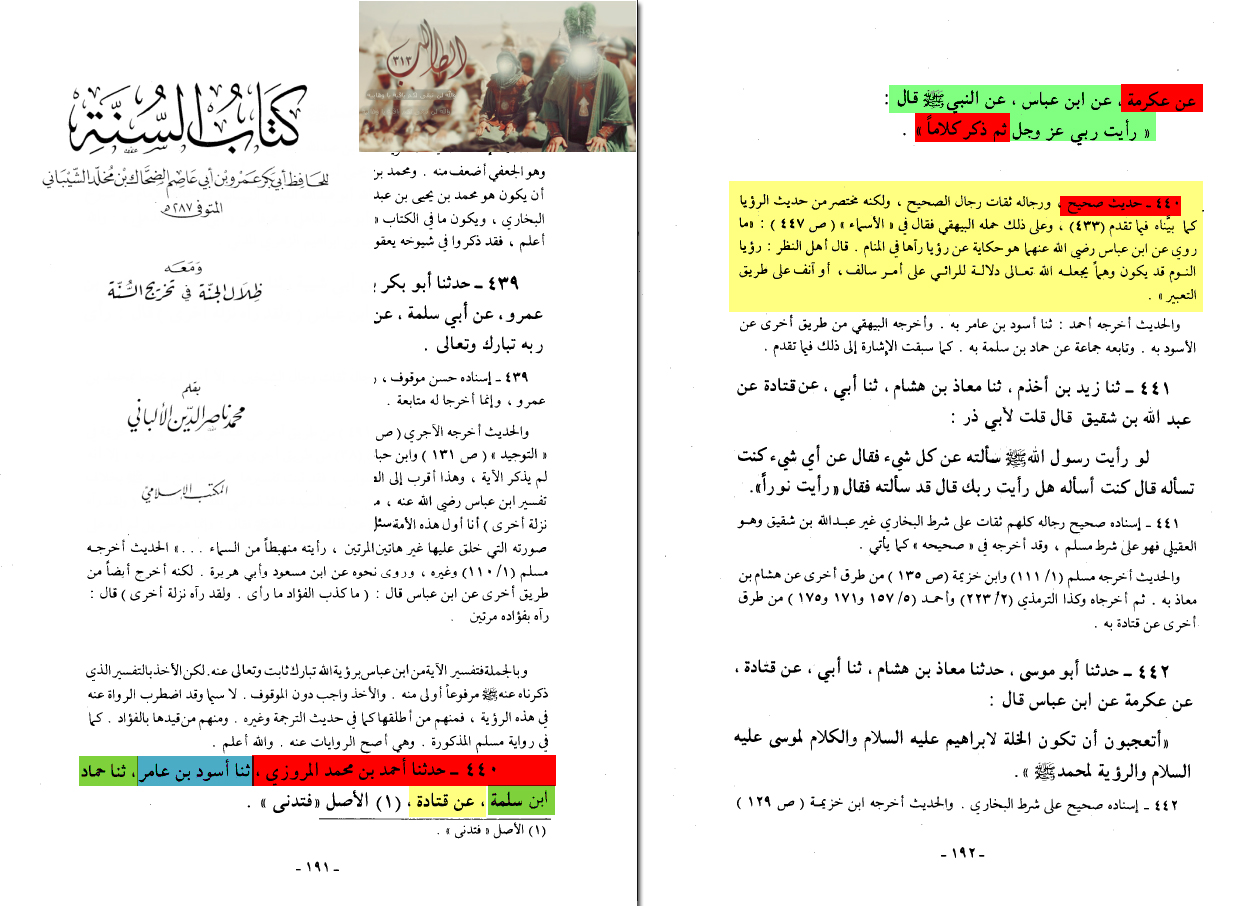 كتاب السنة
للحافظ أبي بكر عمرو بن أبي عاصم الضحاك بن مخلد الشيباني
المتوفى ٢٨٧ هـ
ومعه
ظلال الجنة في تخريج السنة
بقلم
محمد ناصر الدين الألباني
المكتب الإسلامي
الطالب ٣١٣
وهو الجعفي أضعف منه . ومحمد بن
أن يكون هو محمد بن يحيى بن عبد
البخاري ، ويكون ما في الكتاب «
أعلم ، فقد ذكروا في شيوخه يعقو
٤٣٩ ـ حدثنا أبو بكر ب
عمرو ، عن أبي سلمة ، عن
ربه تبارك وتعالى .
٤٣٩ ـ إسناده حسن موقوف ، ر
عمرو ، وإنما أخرجا له متابعة .
والحديث أخرجه الآجري ( ص
« التوحيد » ( ص ١٣١ ) وابن حبا
لم يذكر الآية ، وهذا أقرب إلى الص
تفسير ابن عباس رضي الله عنه ، م
نزلة أخرى ) أنا أول هذه الأمة سئل
صورته التي خلق عليها غير هاتين المرتين ، رأيته منهبطاً من السماء . . . » الحديث أخرجه
مسلم (١/ ١١٠) وغيره ، وروى نحوه عن ابن مسعود وأبي هريرة . لكنه أخرج أيضاً من
طريق أخرى عن ابن عباس قال : ( ما كذب الفؤاد ما رأى . ولقد رآه نزلة أخرى ) قال :
رآه بفؤاده مرتين .
وبالجملة فتفسير الآية من ابن عباس برؤية الله تبارك وتعالى ثابت عنه. لكن الأخذ بالتفسير الذي
ذكرناه عنه ﷺ مرفوعاً أولى منه . والأخذ واجب دون الموقوف . لا سيما وقد اضطرب الرواة عنه
في هذه الرؤية ، فمنهم من أطلقها كما في حديث الترجمة وغيره . ومنهم من قيدها بالفؤاد . كما
في رواية مسلم المذكورة . وهي أصح الروايات عنه . والله أعلم .
٤٤٠ ـ حدثنا أحمد بن محمد المروزي ، ثنا أسود بن عامر ، ثنا حماد
ابن سلمة ، عن قتادة ، (١) الأصل «فتدنى» .
(١) الأصل « فتدنى » .
ـ ١٩١ ـ
عن عكرمة ، عن ابن عباس ، عن النبي ﷺ قال :
« رأيت ربي عز وجل ثم ذكر كلاماً » .
٤٤٠ ـ حديث صحيح ، ورجاله ثقات رجال الصحيح ، ولكنه مختصر من حديث الرؤيا
كما بيَّناه فيما تقدم (٤٣٣) ، وعلى ذلك حمله البيهقي فقال في « الأسماء » ( ص ٤٤٧ ) : «ما
روي عن ابن عباس رضي الله عنهما هو حكاية عن رؤيا رآها في المنام . قال أهل النظر : رؤيا
النوم قد يكون وهماً يجعله الله تعالى دلالة للرائي على أمر سالف ، أو آنف على طريق
التعبير » .
والحديث أخرجه أحمد : ثنا أسود بن عامر به . وأخرجه البيهقي من طريق أخرى عن
الأسود به . وتابعه جماعة عن حماد بن سلمة به . كما سبقت الإشارة إلى ذلك فيما تقدم .
٤٤١ ـ ثنا زيد بن أخذم ، ثنا معاذ بن هشام ، ثنا أبي ، عن قتادة عن
عبد الله بن شقيق قال قلت لأبي ذر :
لو رأيت رسول الله ﷺ سألته عن كل شيء فقال عن أي شيء كنت
تسأله قال كنت أسأله هل رأيت ربك قال قد سألته فقال «رأيت نوراً».
٤٤١ ـ إسناده صحيح رجاله كلهم ثقات على شرط البخاري غير عبدالله بن شقيق وهو
العقيلي فهو على شرط مسلم ، وقد أخرجه في « صحيحه » كما يأتي .
والحديث أخرجه مسلم (١/ ١١١) وابن خزيمة (ص ١٣٥ ) من طرق أخرى عن هشام بن
معاذ به . ثم أخرجاه وكذا الترمذي (٢/ ٢٢٣) وأحمد (٥/ ١٥٧ و١٧١ و١٧٥ ) من طرق
أخرى عن قتادة به .
٤٤٢ ـ حدثنا أبو موسى ، حدثنا معاذ بن هشام ، ثنا أبي ، عن قتادة ،
عن عكرمة عن ابن عباس قال :
«أتعجبون أن تكون الخلة لابراهيم عليه السلام والكلام لموسى عليه
السلام والرؤية لمحمد ﷺ » .
٤٤٢ ـ إسناده صحيح على شرط البخاري . والحديث أخرجه ابن خزيمة ( ص ١٢٩ )
ـ ١٩٢ ـ